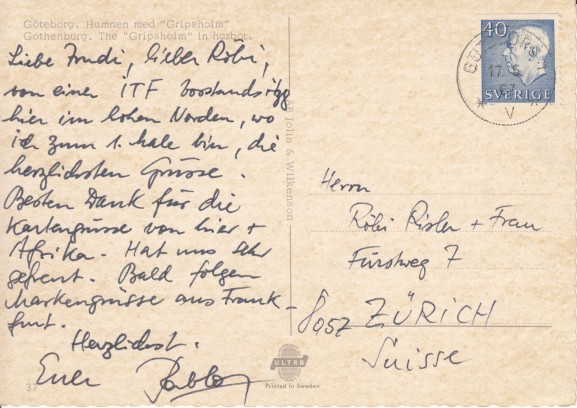 Göteborg. Hamnen med "Gripsholm"
Gothenburg. The "Gripsholm" in harbor.
Liebe Trudi, lieber Röbi,
von einer ITF
hier im hohen Norden, wo
ich zum 1. Male bin, die
herzlichsten Grüsse.
Besten Dank für die
Kartengrüsse von hier +
Afrika. Hat uns sehr
gefreut. Bald folgen
Markengrüsse aus Frank-
furt.
Herzlichst.
Euer
37
Jolin & Wilkenson
ULTRA
Printed in Sweden
40
SVERIGE
17.
V
Herrn
Röbi Risler + Frau
7
8052 ZÜRICH
Suisse